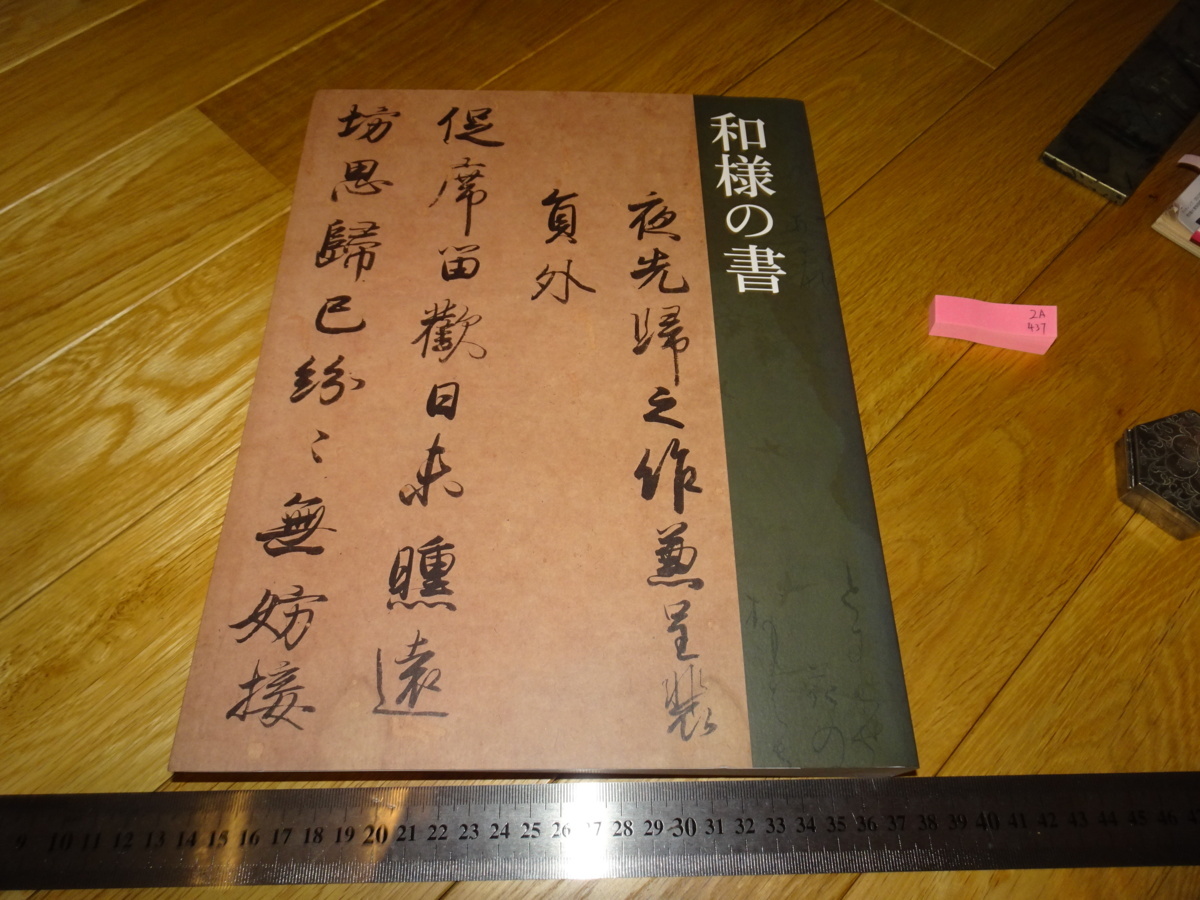 和様の書
夜先歸之作兼呈裴
員外
促席留歡日未曛遠
坊思歸已紛〻無妨接
2A
437
9 10 11 12 13 14 15 16 17 18 19 20 21 22 23 24 25 26 27 28 29 30 31 32 33 34 35 36 37 38 39 40 41 42 43 44 45 46